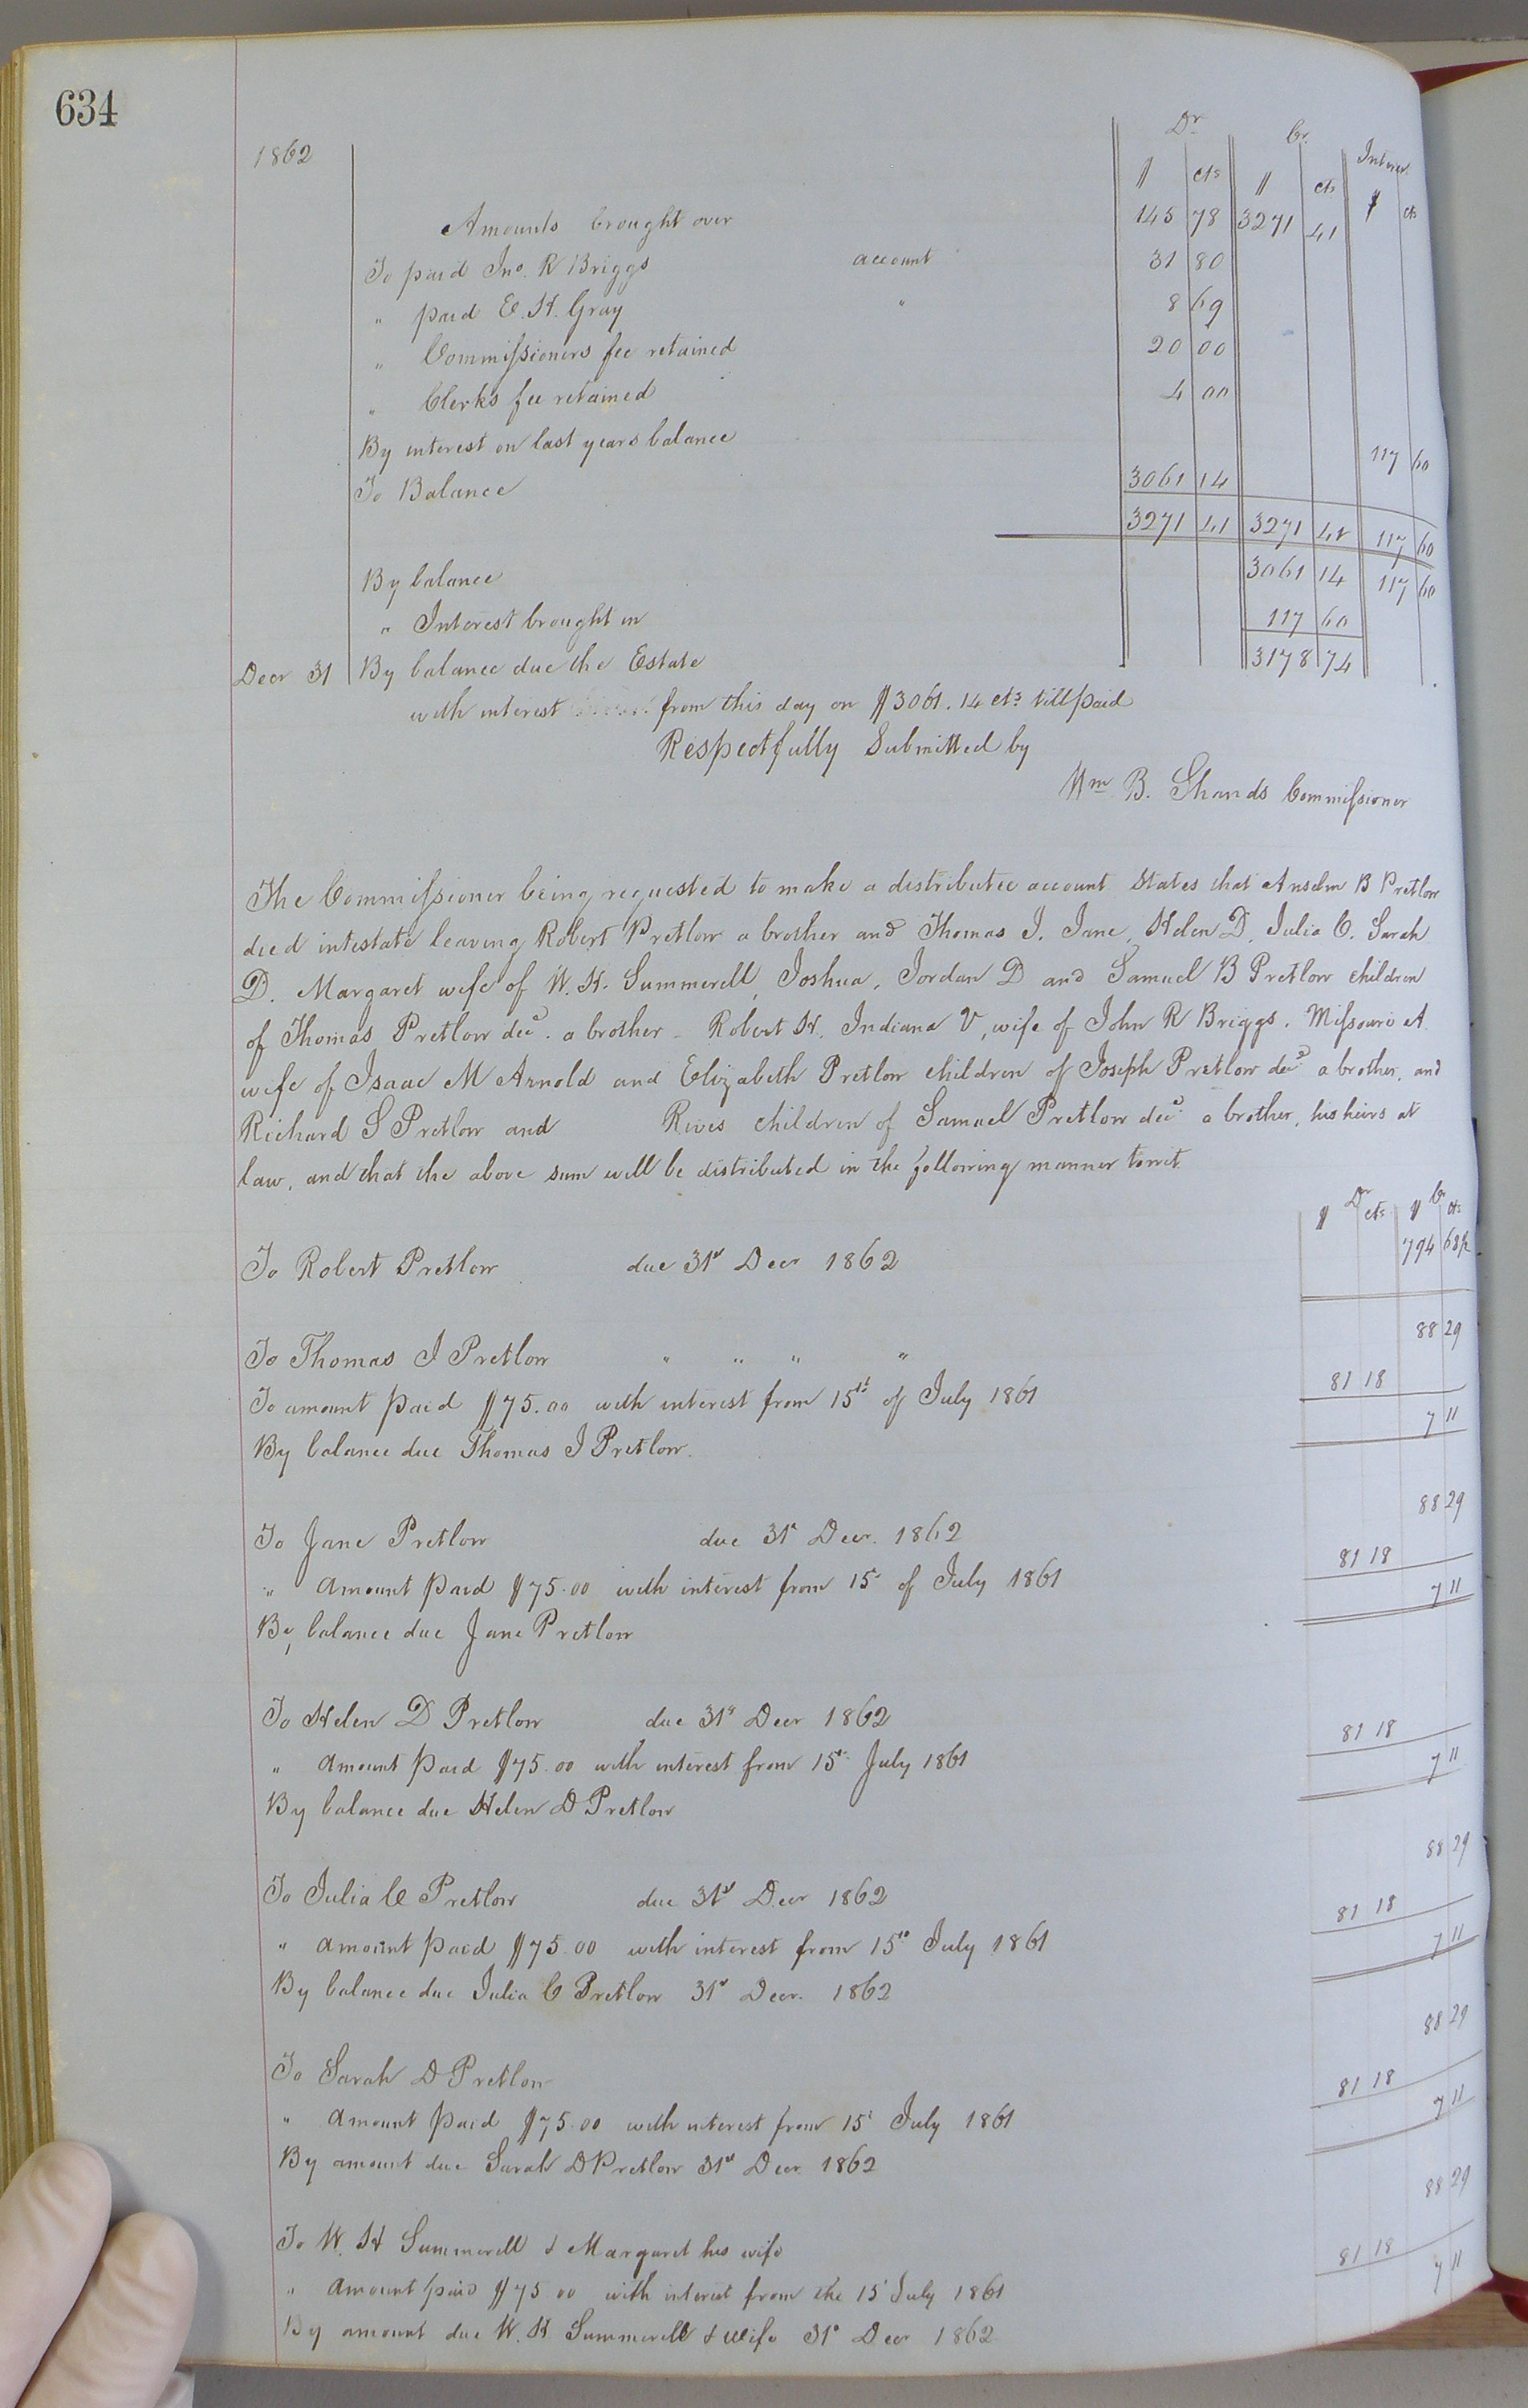 634
1862
Dr Cr. Interest
$ cts $ cts $ cts
Amounts brought over 145 78 3271 41
To paid Jno. R Briggs account 31 80
" paid E. H. Gray " 8 69
" Commissioners fee retained 20 00
" Clerks fee retained 4 00
By interest on last years balance 117 60
To Balance 3061 14
3271 41 3271 41 117 60
By balance 3061 14 117 60
" Interest brought in 117 60
Decr 31 By balance due the Estate 3178 74
with interest from this day on $3061.14 cts till paid
Respectfully Submitted by
Wm B. Shands Commissioner
The Commissioner being requested to make a distributee account States that Anselm B Pretlow
died intestate leaving Robert Pretlow a brother and Thomas J. Jane, Helen D, Julia C. Sarah
D. Margaret wife of W. H. Summerell, Joshua, Jordan D and Samuel B Pretlow children
of Thomas Pretlow decd. a brother - Robert H. Indiana V, wife of John R Briggs. Missouri A
wife of Isaac M Arnold and Elizabeth Pretlow children of Joseph Pretlow decd a brother, and
Richard S Pretlow and Rives children of Samuel Pretlow decd. a brother, his heirs at
law, and that the above sum will be distributed in the following manner towit
$ Dr cts $ Cr cts
To Robert Pretlow due 31st Decr 1862 794 68½
To Thomas J Pretlow " " " " 88 29
To amount paid $75.00 with interest from 15th of July 1861 81 18
By balance due Thomas J Pretlow. 7 11
To Jane Pretlow due 31st Decr. 1862 88 29
" Amount paid $75.00 with interest from 15t of July 1861 81 18
By balance due Jane Pretlow 7 11
To Helen D Pretlow due 31st Decr 1862
" Amount paid $75.00 with interest from 15th July 1861 81 18
By balance due Helen D Pretlow 7 11
To Julia C Pretlow due 31st Decr 1862 88 29
" Amount paid $75.00 with interest from 15th July 1861 81 18
By balance due Julia C Pretlow 31st Decr. 1862 7 11
To Sarah D Pretlow 88 29
" Amount paid $75.00 with interest from 15t July 1861 81 18
By amount due Sarah D Pretlow 31st Decr 1862 7 11
To W. H Summerell & Margaret his wife 88 29
" Amount paid $75 00 with interest from the 15 July 1861 81 18
By amount due W. H Summerell & Wife 31st Decr 1862 7 11